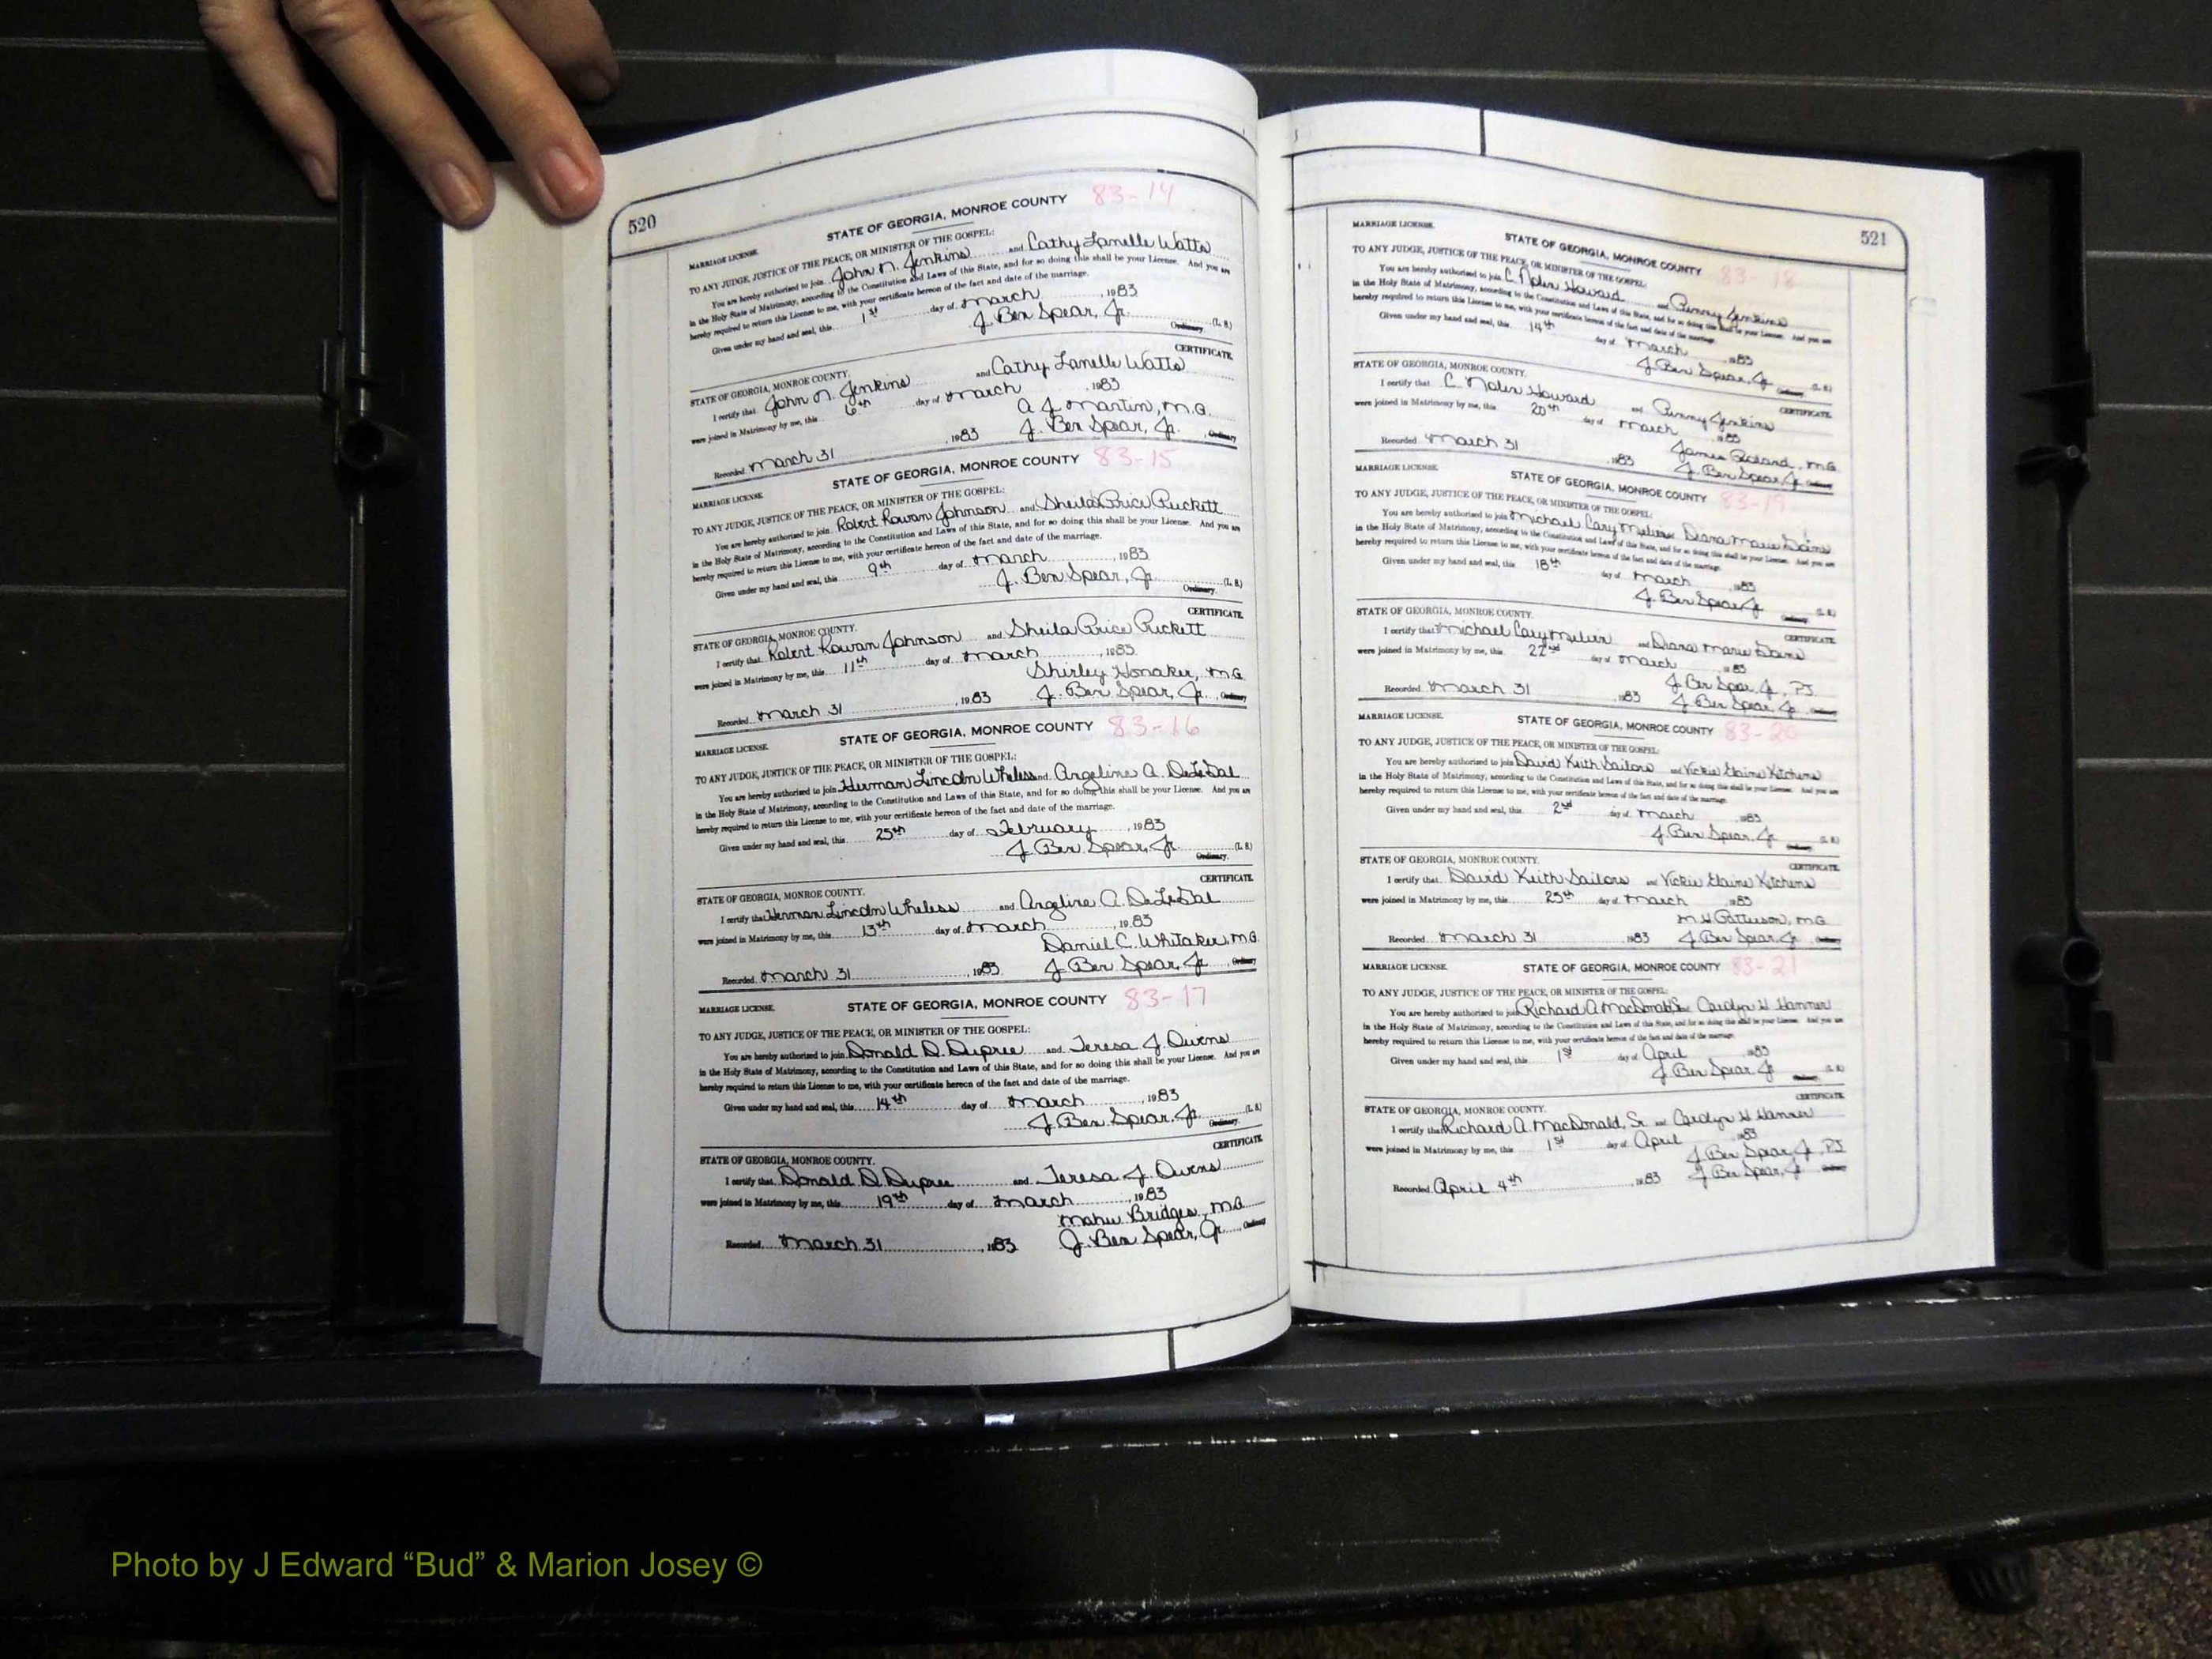 520
STATE OF GEORGIA, MONROE COUNTY 83-14
MARRIAGE LICENSE.
TO ANY JUDGE, JUSTICE OF THE PEACE, OR MINISTER OF THE GOSPEL:
You are hereby authorized to join John N. Jenkins and Cathy Lanelle Watts
in the Holy State of Matrimony, according to the Constitution and Laws of this State, and for so doing this shall be your License. And you are
hereby required to return this License to me, with your certificate hereon of the fact and date of the marriage.
Given under my hand and seal, this 1st day of March, 1983
J. Ben Spear, Jr. (L. S.)
Ordinary.
CERTIFICATE
STATE OF GEORGIA, MONROE COUNTY.
I certify that John N. Jenkins and Cathy Lanelle Watts
were joined in Matrimony by me, this 6th day of March, 1983
A J Martin, M.G.
Recorded March 31, 1983 J. Ben Spear, Jr., Ordinary
STATE OF GEORGIA, MONROE COUNTY 83-15
MARRIAGE LICENSE.
TO ANY JUDGE, JUSTICE OF THE PEACE, OR MINISTER OF THE GOSPEL:
You are hereby authorized to join Robert Rowan Johnson and Sheila Price Puckett
in the Holy State of Matrimony, according to the Constitution and Laws of this State, and for so doing this shall be your License. And you are
hereby required to return this License to me, with your certificate hereon of the fact and date of the marriage.
Given under my hand and seal, this 9th day of March, 1983
J. Ben Spear, Jr. (L. S.)
Ordinary.
CERTIFICATE
STATE OF GEORGIA, MONROE COUNTY.
I certify that Robert Rowan Johnson and Sheila Price Puckett
were joined in Matrimony by me, this 11th day of March, 1983
Shirley Honaker, M.G.
Recorded March 31, 1983 J. Ben Spear, Jr., Ordinary
STATE OF GEORGIA, MONROE COUNTY 83-16
MARRIAGE LICENSE.
TO ANY JUDGE, JUSTICE OF THE PEACE, OR MINISTER OF THE GOSPEL:
You are hereby authorized to join Herman Lincoln Wheless and Angeline A.
in the Holy State of Matrimony, according to the Constitution and Laws of this State, and for so doing this shall be your License. And you are
hereby required to return this License to me, with your certificate hereon of the fact and date of the marriage.
Given under my hand and seal, this 25th day of February, 1983
J. Ben Spear, Jr. (L. S.)
Ordinary.
CERTIFICATE
STATE OF GEORGIA, MONROE COUNTY.
I certify that Herman Lincoln Wheless and Angeline A.
were joined in Matrimony by me, this 13th day of March, 1983
Daniel C. Whitaker, M.G.
Recorded March 31, 1983 J. Ben Spear, Jr., Ordinary
STATE OF GEORGIA, MONROE COUNTY 83-17
MARRIAGE LICENSE.
TO ANY JUDGE, JUSTICE OF THE PEACE, OR MINISTER OF THE GOSPEL:
You are hereby authorized to join Donald D. Dupree and Teresa J. Owens
in the Holy State of Matrimony, according to the Constitution and Laws of this State, and for so doing this shall be your License. And you are
hereby required to return this License to me, with your certificate hereon of the fact and date of the marriage.
Given under my hand and seal, this 14th day of March, 1983
J. Ben Spear, Jr. (L. S.)
Ordinary.
CERTIFICATE
STATE OF GEORGIA, MONROE COUNTY.
I certify that Donald D. Dupree and Teresa J. Owens
were joined in Matrimony by me, this 19th day of March, 1983
Bridges, M.G.
Recorded March 31, 1983 J. Ben Spear, Jr., Ordinary
521
MARRIAGE LICENSE.
STATE OF GEORGIA, MONROE COUNTY 83-18
TO ANY JUDGE, JUSTICE OF THE PEACE, OR MINISTER OF THE GOSPEL:
You are hereby authorized to join C. Nolen Howard and Penny Jenkins
in the Holy State of Matrimony, according to the Constitution and Laws of this State, and for so doing this shall be your License. And you are
hereby required to return this License to me, with your certificate hereon of the fact and date of the marriage.
Given under my hand and seal, this 14th day of March, 1983
J. Ben Spear, Jr. (L. S.)
Ordinary.
CERTIFICATE
STATE OF GEORGIA, MONROE COUNTY.
I certify that C. Nolen Howard and Penny Jenkins
were joined in Matrimony by me, this 20th day of March, 1983
James, M.G.
Recorded March 31, 1983 J. Ben Spear, Jr. Ordinary
MARRIAGE LICENSE.
STATE OF GEORGIA, MONROE COUNTY 83-19
TO ANY JUDGE, JUSTICE OF THE PEACE, OR MINISTER OF THE GOSPEL:
You are hereby authorized to join Michael Cary Diana Marie
in the Holy State of Matrimony, according to the Constitution and Laws of this State, and for so doing this shall be your License. And you are
hereby required to return this License to me, with your certificate hereon of the fact and date of the marriage.
Given under my hand and seal, this 18th day of March, 1983
J. Ben Spear Jr (L. S.)
Ordinary.
CERTIFICATE
STATE OF GEORGIA, MONROE COUNTY.
I certify that Michael Cary and Diana Marie
were joined in Matrimony by me, this 22nd day of March, 1983
J Ben Spear Jr, PJ
Recorded March 31, 1983 J. Ben Spear Jr Ordinary
MARRIAGE LICENSE.
STATE OF GEORGIA, MONROE COUNTY 83-20
TO ANY JUDGE, JUSTICE OF THE PEACE, OR MINISTER OF THE GOSPEL:
You are hereby authorized to join David Keith Sailors and Vickie Elaine Kitchens
in the Holy State of Matrimony, according to the Constitution and Laws of this State, and for so doing this shall be your License. And you are
hereby required to return this License to me, with your certificate hereon of the fact and date of the marriage.
Given under my hand and seal, this 2nd day of March, 1983
J. Ben Spear, Jr (L. S.)
Ordinary.
CERTIFICATE
STATE OF GEORGIA, MONROE COUNTY.
I certify that David Keith Sailors and Vickie Elaine Kitchens
were joined in Matrimony by me, this 25th day of March, 1983
M H Patterson, M.G.
Recorded March 31, 1983 J. Ben Spear, Jr Ordinary
MARRIAGE LICENSE.
STATE OF GEORGIA, MONROE COUNTY 83-21
TO ANY JUDGE, JUSTICE OF THE PEACE, OR MINISTER OF THE GOSPEL:
You are hereby authorized to join Richard A MacDonald, Sr. Carolyn H Hanner
in the Holy State of Matrimony, according to the Constitution and Laws of this State, and for so doing this shall be your License. And you are
hereby required to return this License to me, with your certificate hereon of the fact and date of the marriage.
Given under my hand and seal, this 1st day of April 1983
J. Ben Spear Jr (L. S.)
Ordinary.
CERTIFICATE
STATE OF GEORGIA, MONROE COUNTY.
I certify that Richard A. MacDonald, Sr. and Carolyn H Hanner
were joined in Matrimony by me, this 1st day of April 1983
J Ben Spear, Jr, PJ
Recorded April 4th, 1983 J Ben Spear, Jr Ordinary
Photo by J Edward “Bud” & Marion Josey ©